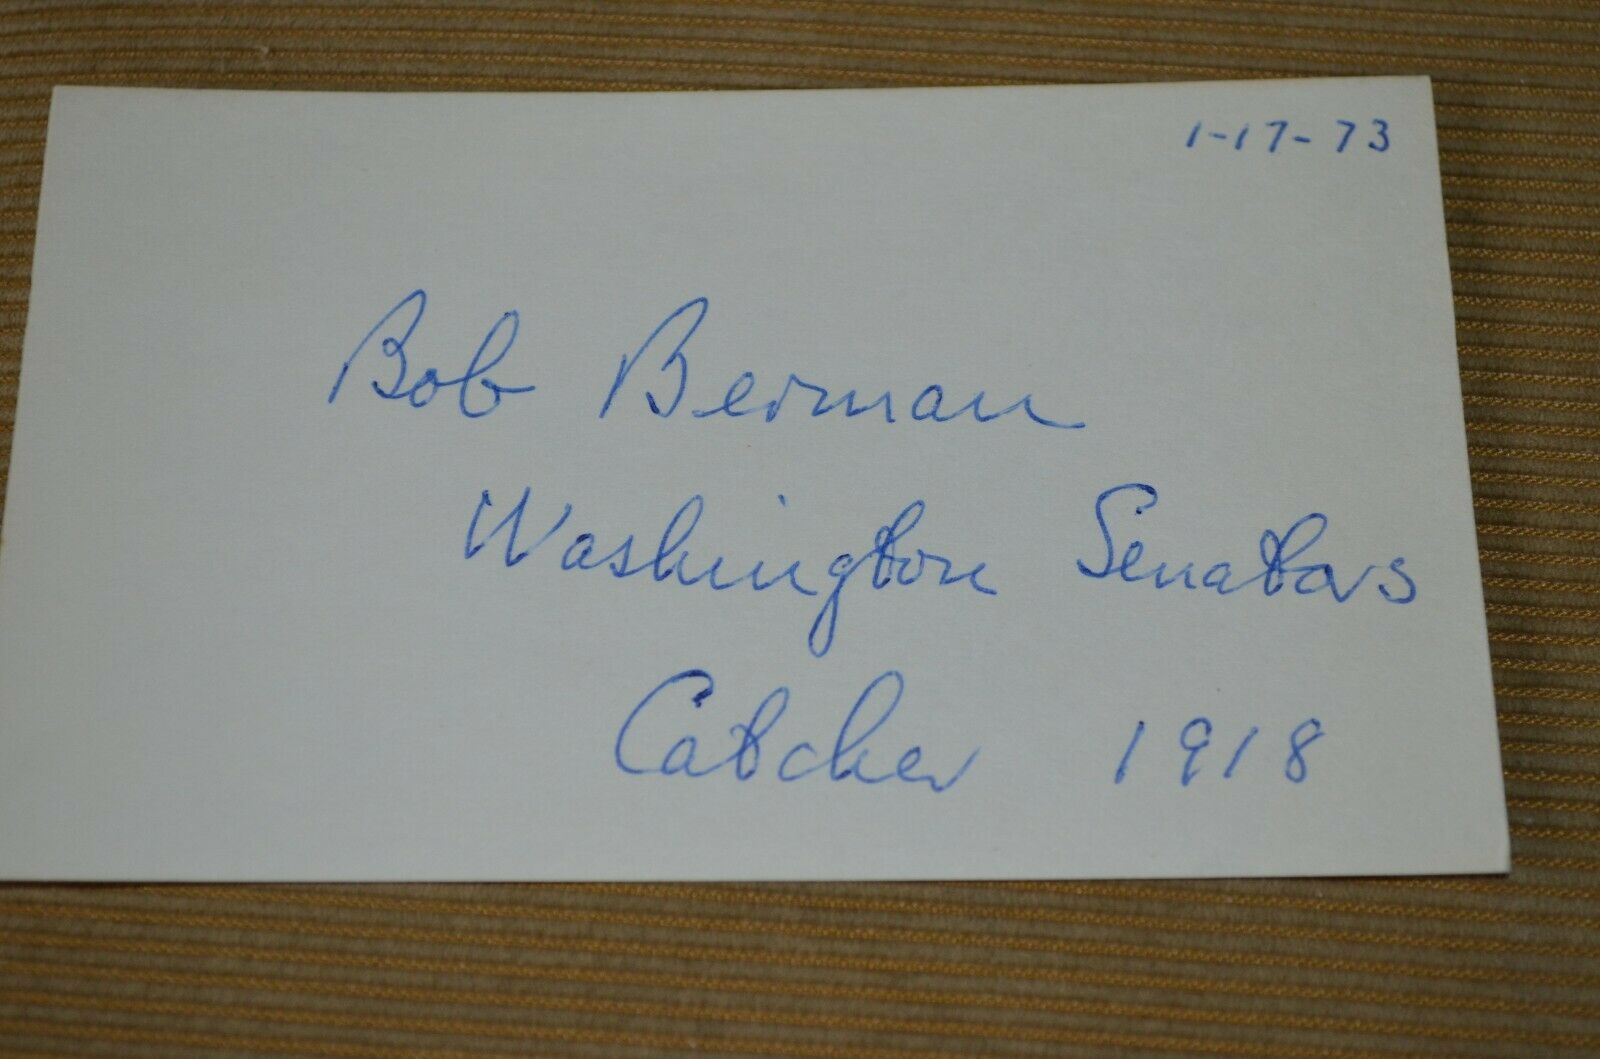 1-17-73
Bob Berman
Washington Senators
Catcher 1918